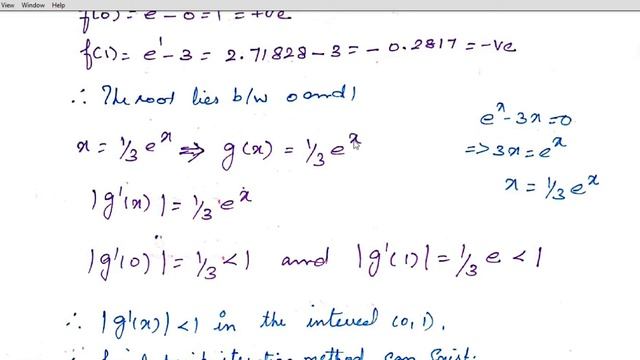 View Window Help
f(0) = e - 0 = 1 = +ve
f(1) = e¹ - 3 = 2.71828 - 3 = - 0.2817 = -ve
∴ The root lies b/w 0 and 1
x = 1/3 e^x ⇒ g(x) = 1/3 e^x
e^x - 3x = 0
⇒ 3x = e^x
x = 1/3 e^x
|g'(x)| = 1/3 e^x
|g'(0)| = 1/3 < 1 and |g'(1)| = 1/3 e < 1
∴ |g'(x)| < 1 in the interval (0, 1).
iteration method can exist.